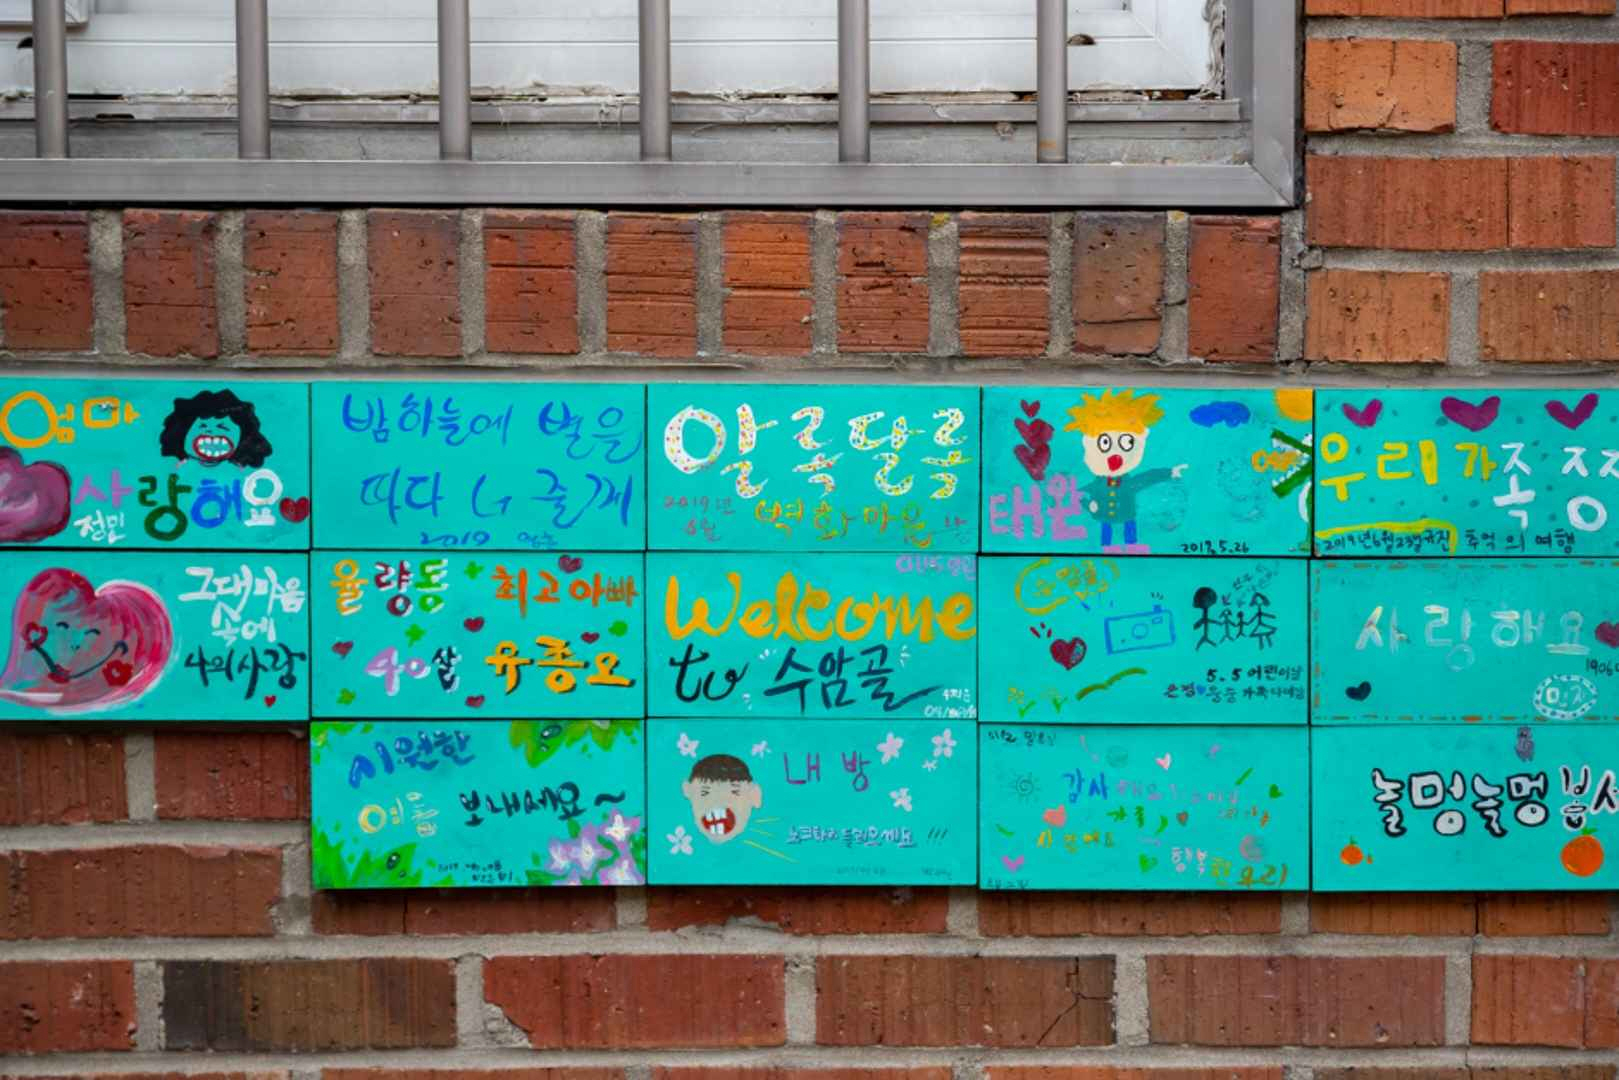 엄마
사랑해요
정민
밤하늘에 별을
따다 줄께
2019
알록달록
2019년
6월
벽화마을
태완
2019.5.26
우리가족
2019년6월23일 추억의 여행
그대마음
속에
나의사랑
율량동 최고아빠
40살 유종오
Welcome
to 수암골
5.5 어린이날
사랑해요
1906
민지
시원한
여름
보내세요~
내 방
노크하고 들어오세요 !!!
감사해요!
사랑해요
행복한 우리
놀멍놀멍